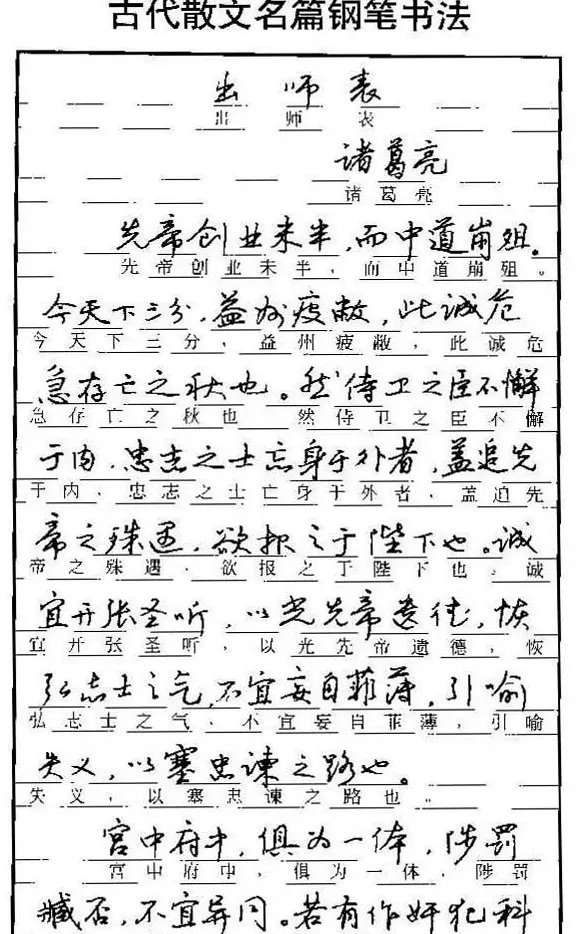 古代散文名篇钢笔书法
出师表
出师表
诸葛亮
诸葛亮
先帝创业未半，而中道崩殂。
先帝创业未半，而中道崩殂。
今天下三分，益州疲敝，此诚危
今天下三分，益州疲敝，此诚危
急存亡之秋也。然侍卫之臣不懈
急存亡之秋也 然侍卫之臣不懈
于内，忠志之士忘身于外者，盖追先
于内、忠志之士亡身于外者、盖追先
帝之殊遇，欲报之于陛下也。诚
帝之殊遇、欲报之于陛下也，诚
宜开张圣听，以光先帝遗德，恢
宜开张圣听，以光先帝遗德，恢
弘志士之气，不宜妄自菲薄，引喻
弘志士之气、不宜妄自菲薄，引喻
失义，以塞忠谏之路也。
失义，以塞忠谏之路也。
宫中府中，俱为一体，陟罚
宫中府中，俱为一体，陟罚
臧否，不宜异同。若有作奸犯科